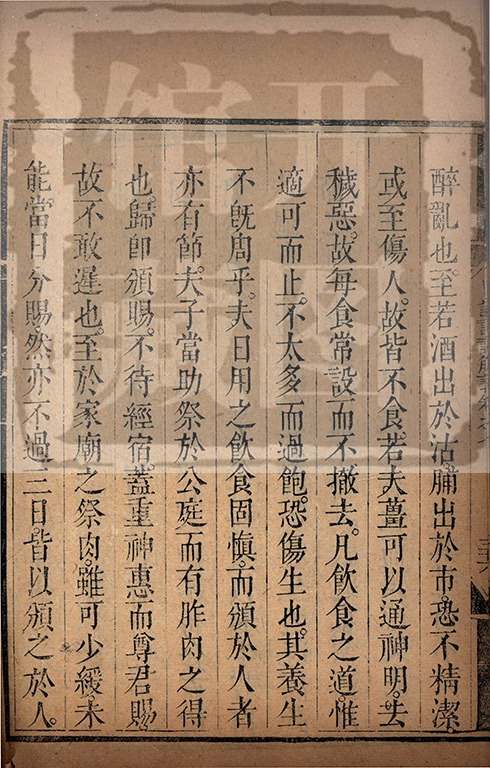 醉亂也。至若酒出於沽。脯出於市。恐不精潔。
或至傷人。故皆不食。若夫薑可以通神明。去
穢惡。故每食常設而不撤去。凡飲食之道。惟
適可而止。不太多而過飽。恐傷生也。其養生
不旣周乎。夫日用之飲食固愼。而頒於人者
亦有節。夫子當助祭於公庭而有胙肉之得
也。歸卽頒賜。不待經宿。蓋重神惠而尊君賜。
故不敢遲也。至於家廟之祭肉。雖可少緩。未
能當日分賜。然亦不過三日。皆以頒之於人。